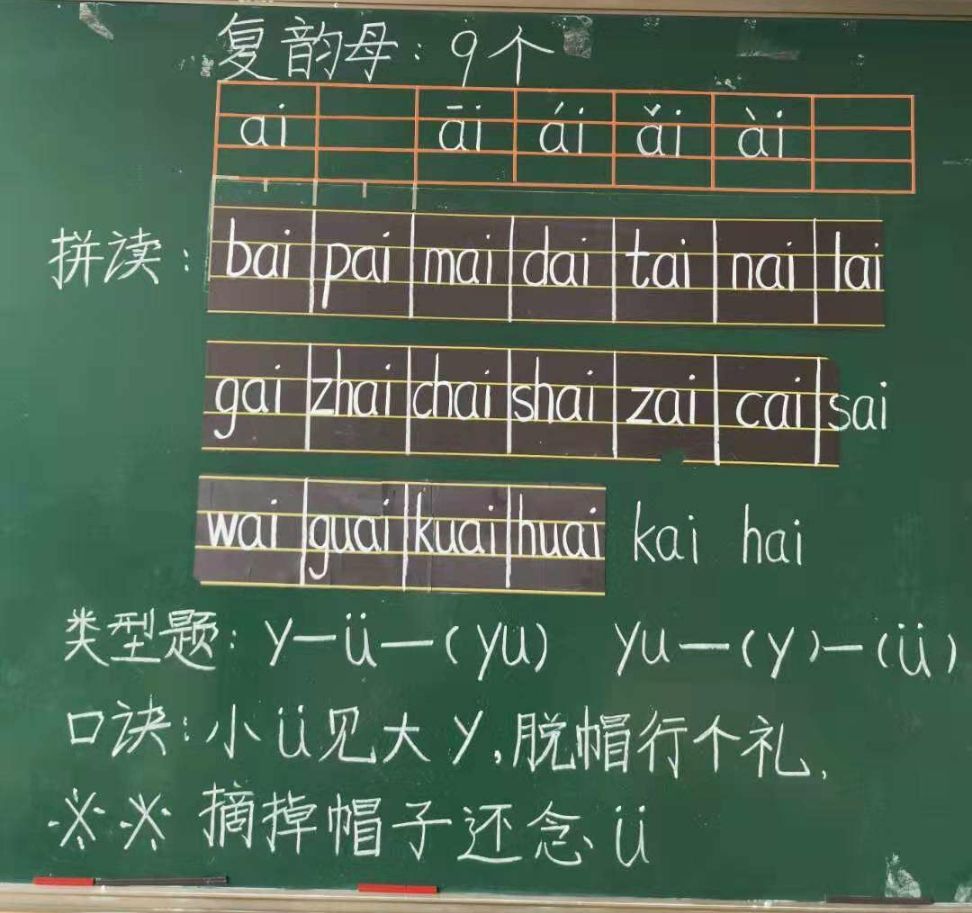 复韵母：9个
ai āi ái ǎi ài
拼读：bai pai mai dai tai nai lai
gai zhai chai shai zai cai sai
wai guai kuai huai kai hai
类型题：y—ü—(yu) yu—(y)—(ü)
口诀：小ü见大y，脱帽行个礼，
※※ 摘掉帽子还念ü